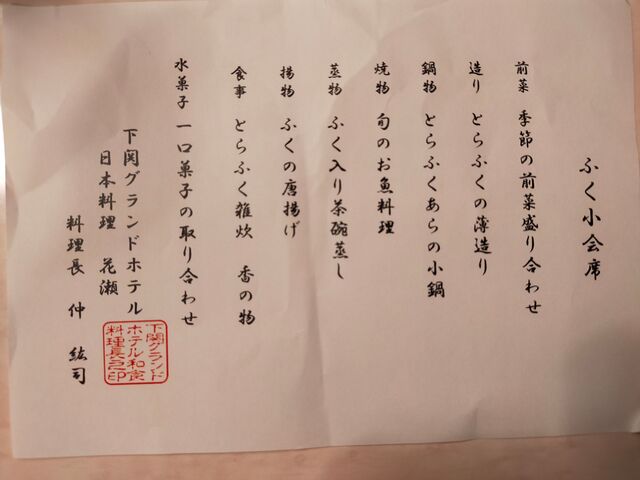 ふく小会席
前菜 季節の前菜盛り合わせ
造り とらふくの薄造り
鍋物 とらふくあらの小鍋
焼物 旬のお魚料理
蒸物 ふく入り茶碗蒸し
揚物 ふくの唐揚げ
食事 とらふく雑炊 香の物
水菓子 一口菓子の取り合わせ
下関グランドホテル
日本料理 花瀬
料理長 仲 紘司
下関グランド
ホテル和食
料理長之印